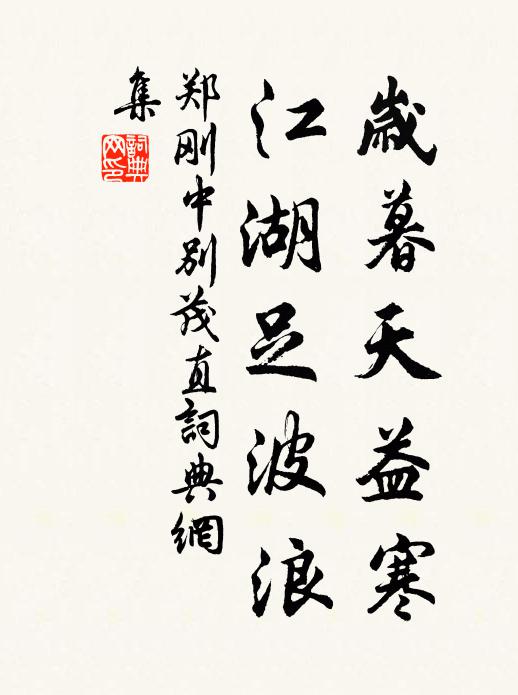 歲暮天益寒
江湖足波浪
郑刚中别茂直詞典網
集
詞典
网印